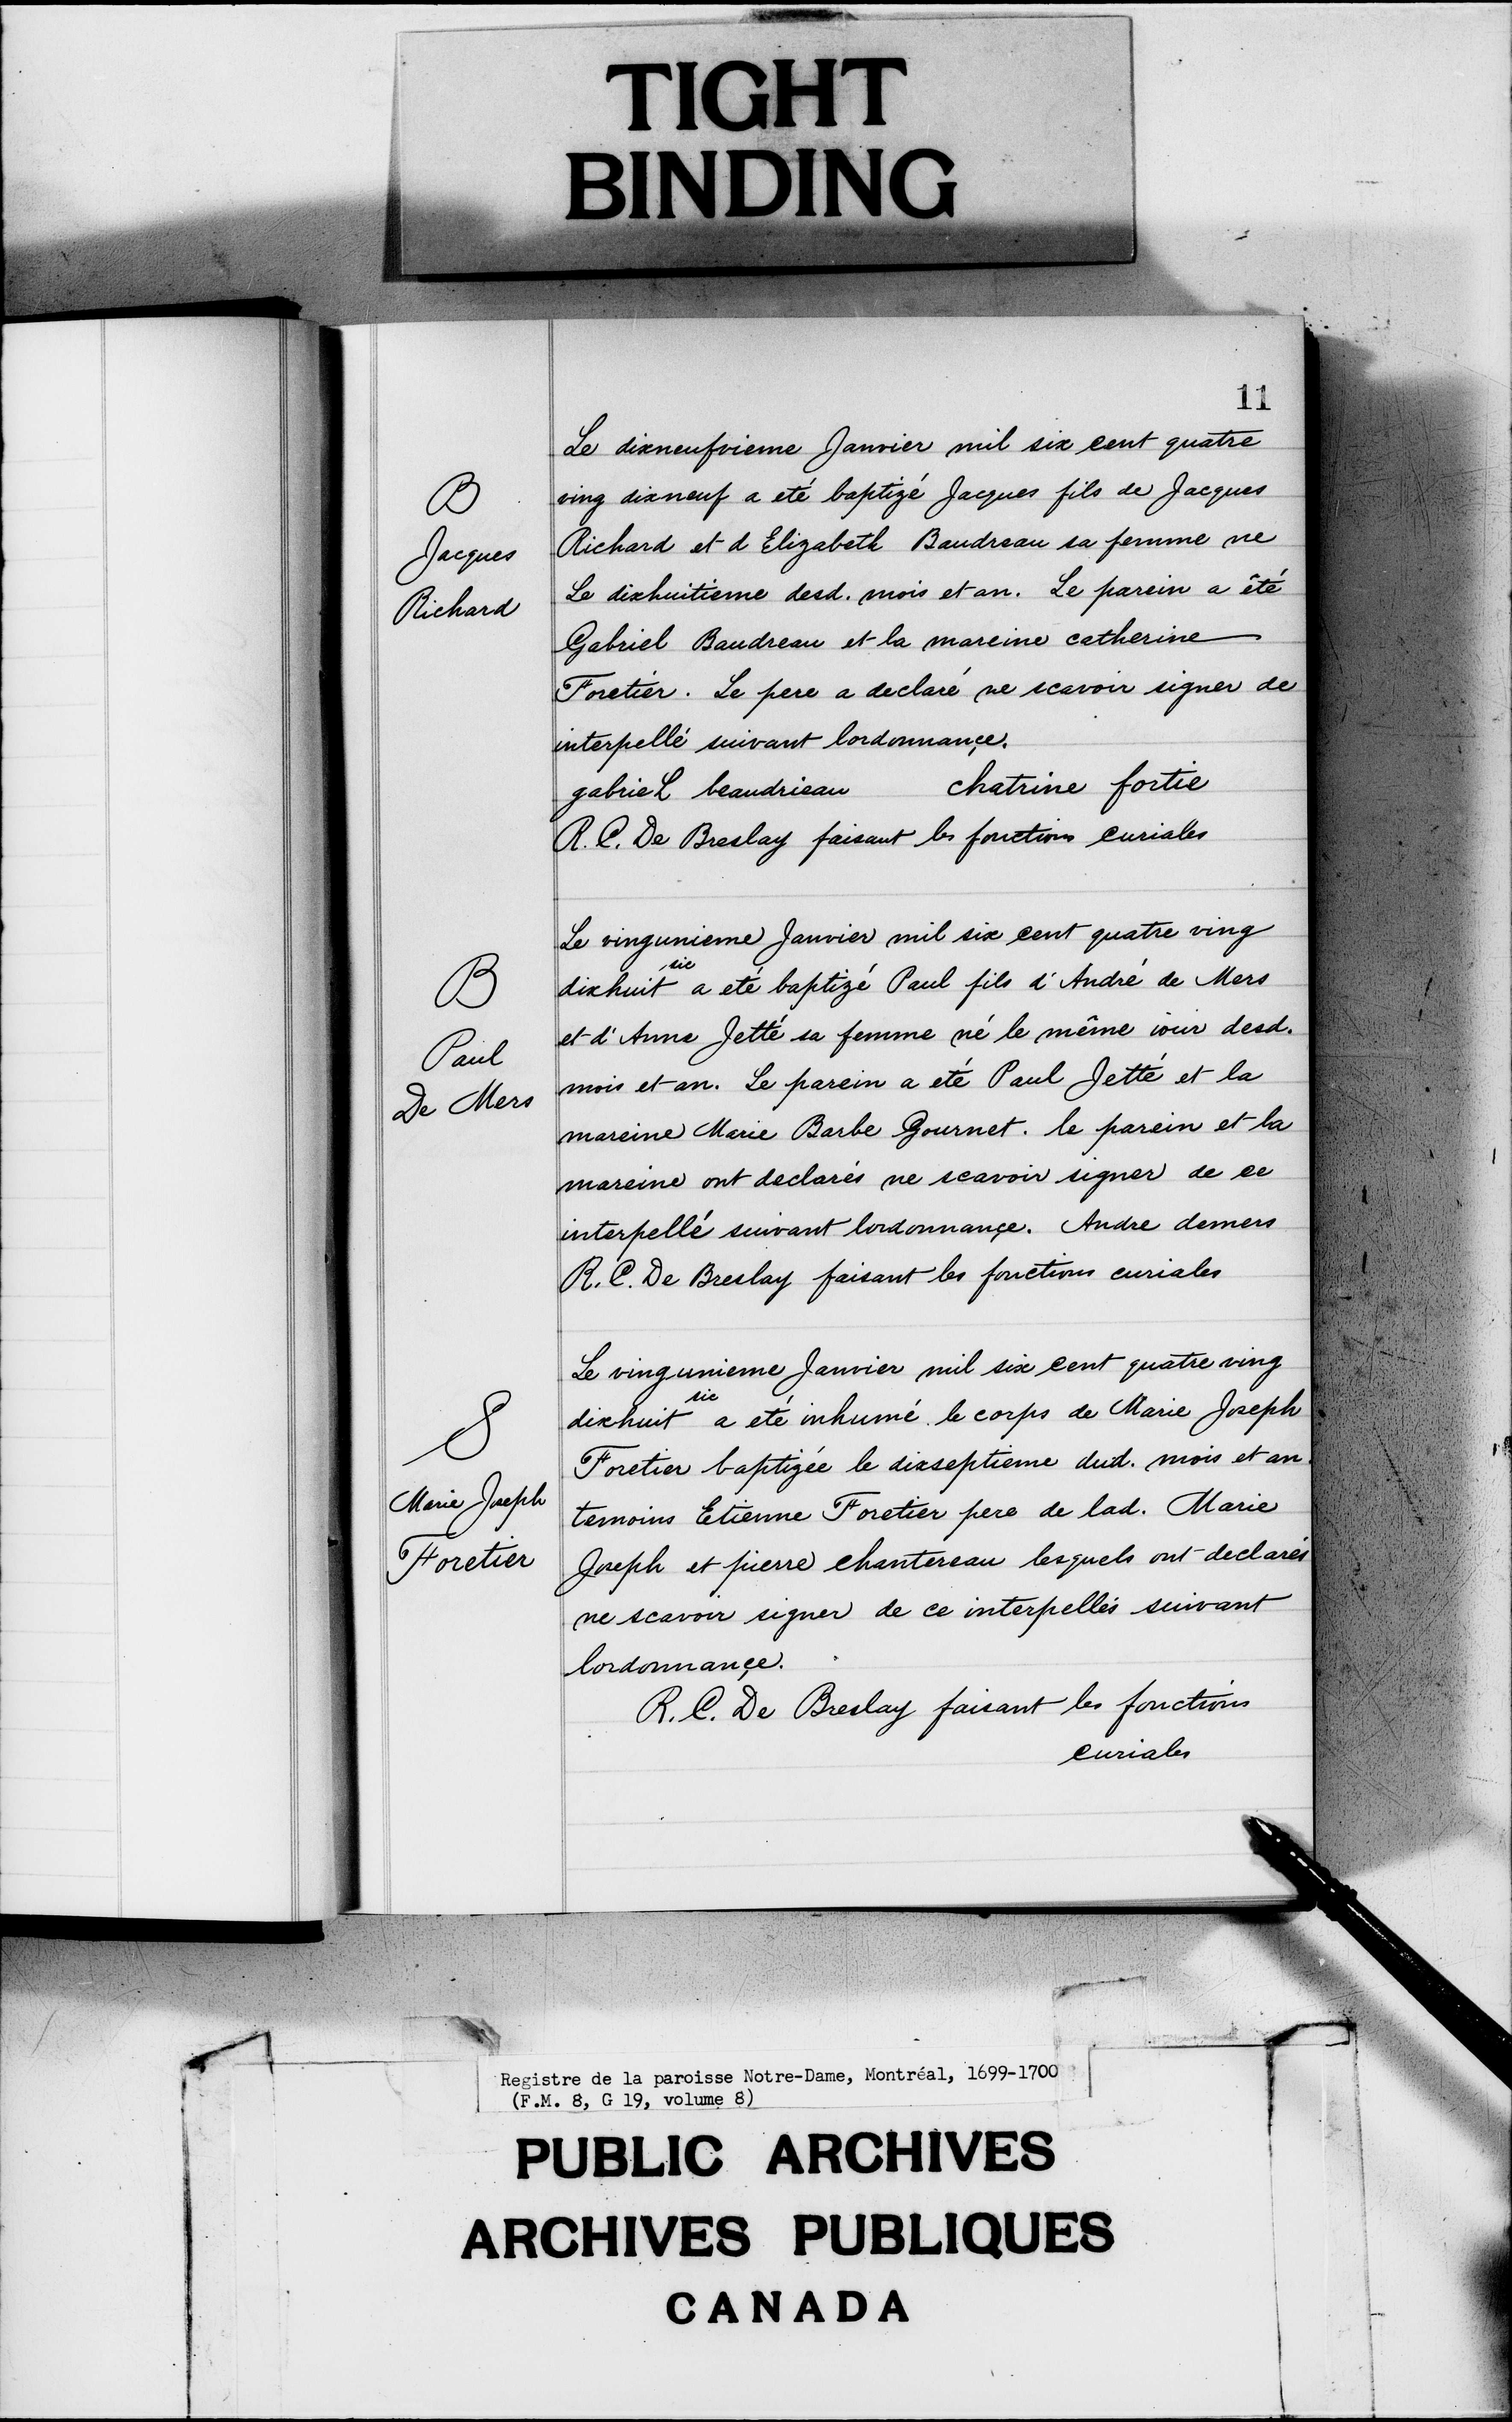 TIGHT
BINDING
11
Le dixneufvieme Janvier mil six cent quatre
B
ving dixneuf a eté baptizé Jacques fils de Jacques
Jacques
Richard et d Elizabeth Baudreau sa femme ne
Richard
Le dixhuitieme desd. mois et an. Le parein a êté
Gabriel Baudreau et la mareine catherine
Foretier. Le pere a declaré ne scavoir signer de
interpellé suivant lordonnançe.
gabrieL beaudrieau chatrine fortie
R. C. De Breslay faisant les fonctions curiales
Le vingunieme Janvier mil six cent quatre ving
B
dixhuit sic a eté baptizé Paul fils d'André de Mers
et d'Anne Jetté sa femme né le même iour desd.
Paul
mois et an. Le parein a eté Paul Jetté et la
De Mers
mareine Marie Barbe Gournet. le parein et la
mareine ont declarés ne scavoir signer de ce
interpellé suivant lordonnançe. Andre demers
R. C. De Breslay faisant les fonctions curiales
Le vingunieme Janvier mil six cent quatre ving
S
dixhuit sic a eté inhumé le corps de Marie Joseph
Foretier baptizée le dixseptieme dud. mois et an.
Marie Joseph
temoins Etienne Foretier pere de lad. Marie
Foretier
Joseph et pierre chantereau lesquels ont declarés
ne scavoir signer de ce interpellés suivant
lordonnançe.
R. C. De Breslay faisant les fonctions
curiales
Registre de la paroisse Notre-Dame, Montréal, 1699-1700
(F.M. 8, G 19, volume 8)
PUBLIC ARCHIVES
ARCHIVES PUBLIQUES
CANADA